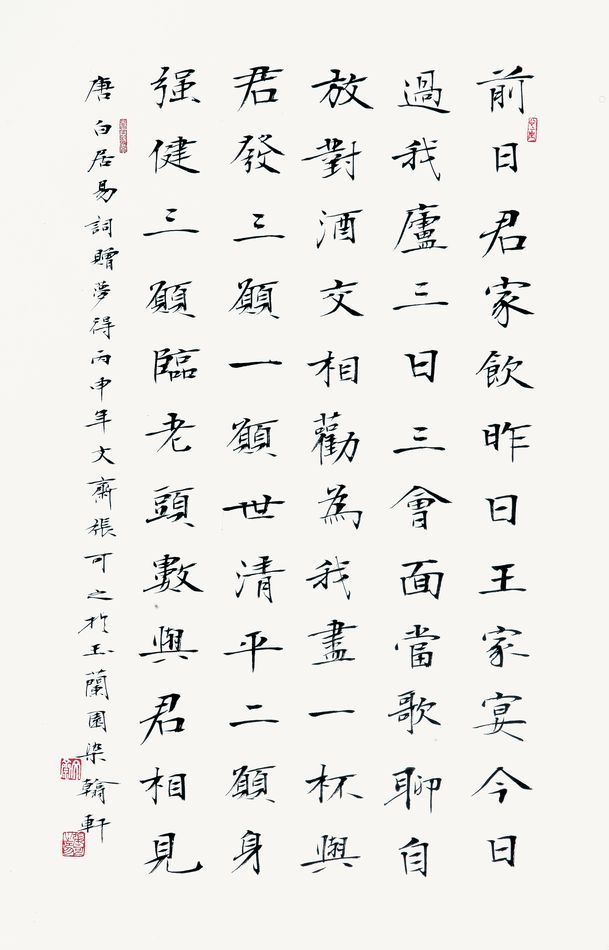 前日君家飲昨日王家宴今日
過我廬三日三會面當歌聊自
放對酒交相勸為我盡一杯與
君發三願一願世清平二願身
强健三願臨老頭數與君相見
唐白居易詞贈夢得丙申年文齋張可之於玉蘭園染翰軒